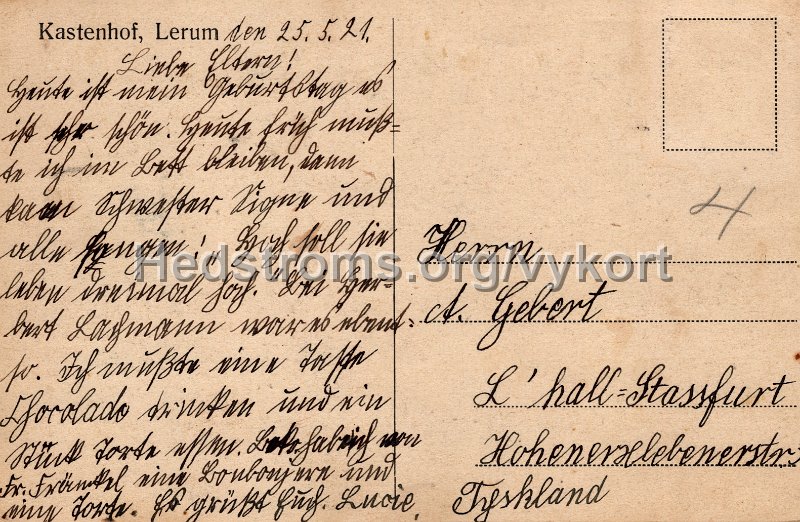 Kastenhof, Lerum den 25. 5. 21.
Liebe Eltern!
Heute ist mein Geburtstag es
ist sehr schön. Heute früh muß=
te ich im Bett bleiben, dann
kam Schwester Signe und
alle sangen: „Hoch soll sie
leben dreimal hoch. Bei Her=
bert Lachmann war es eben=
so. Ich mußte eine Tasse
Chocolade trinken und ein
Stück Torte essen. habe ich von
Fr. Fränkel eine Bonboniere und
eine Torte. Es grüßt Euch. Lucie.
4
Herrn
A. Gebert
L'hall=Stassfurt
Hohenerxlebenerstr.
Tyskland
Hedstroms.org/vykort